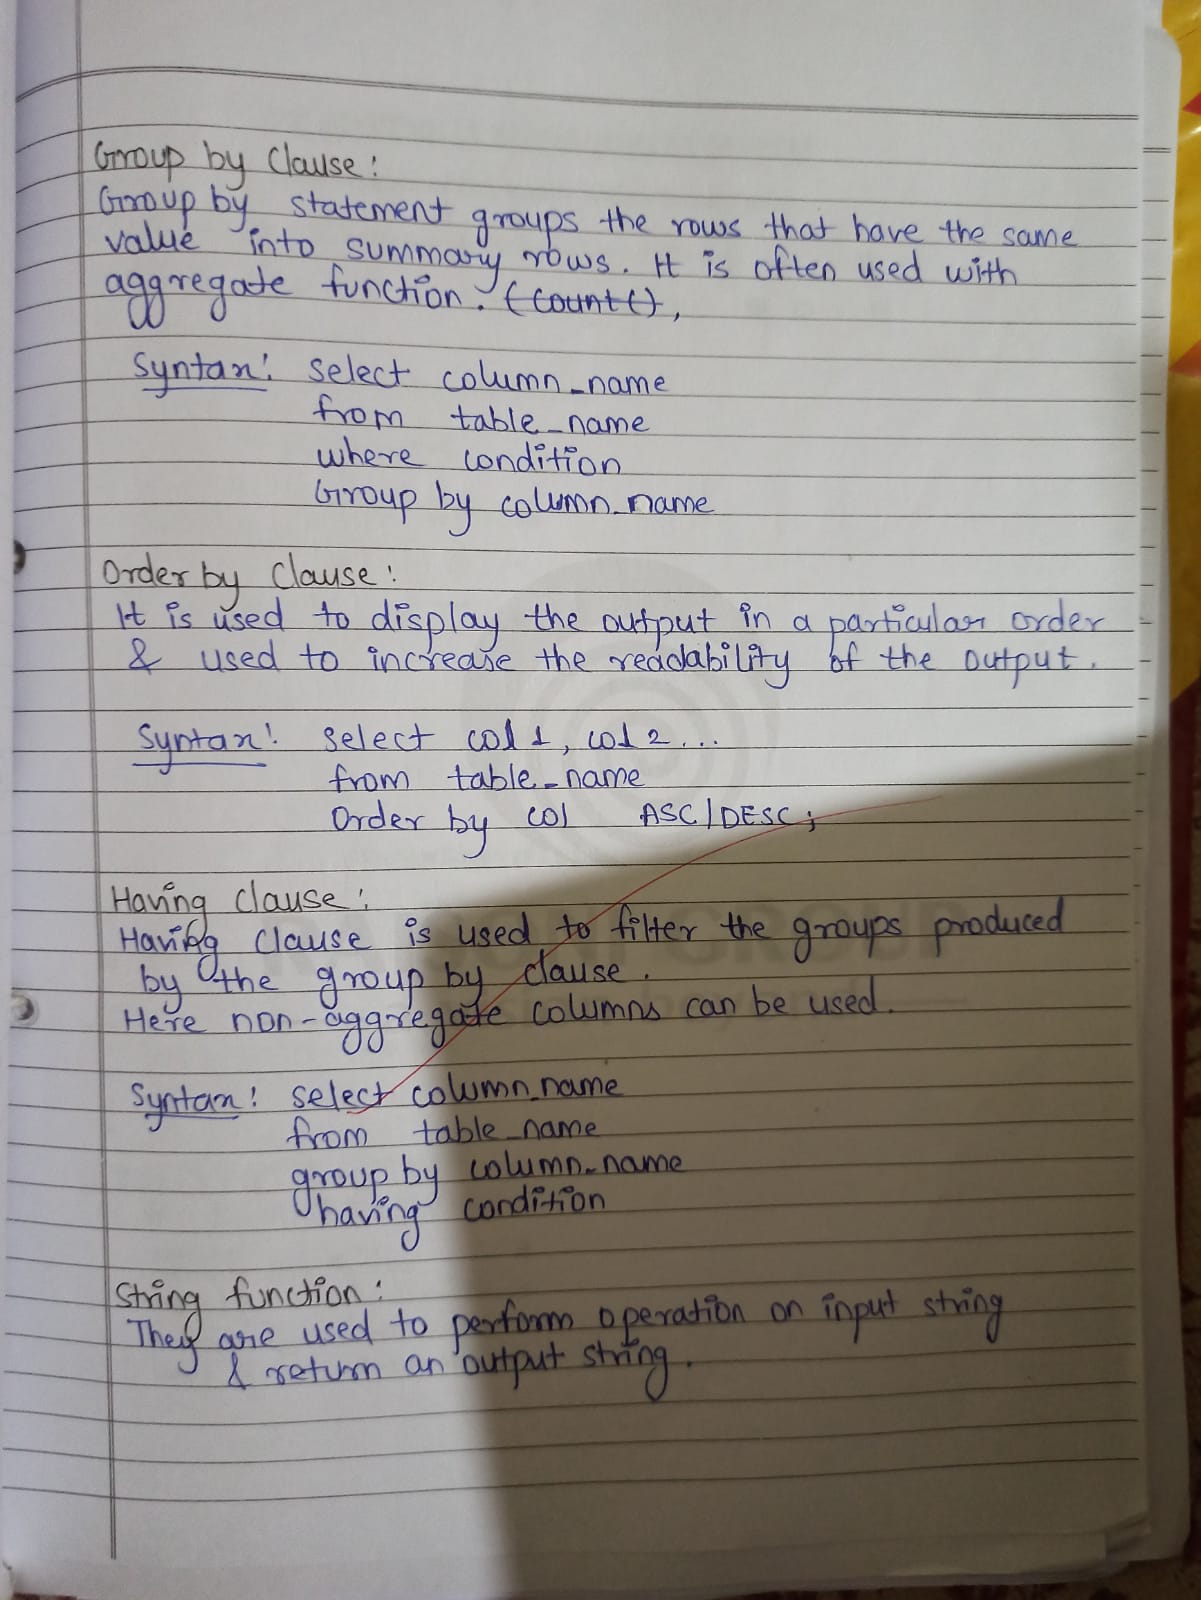 Group by Clause:
Group by statement groups the rows that have the same
value into summary rows. It is often used with
aggregate function. (count(),
Syntax: select column_name
from table_name
where condition
Group by column_name
Order by Clause:
It is used to display the output in a particular order
& used to increase the readability of the output.
Syntax: select col1, col2...
from table_name
Order by col ASC/DESC;
Having clause:
Having clause is used to filter the groups produced
by the group by clause.
Here non-aggregate columns can be used.
Syntax: select column_name
from table_name
group by column_name
having condition
String function:
They are used to perform operation on input string
& return an output string.